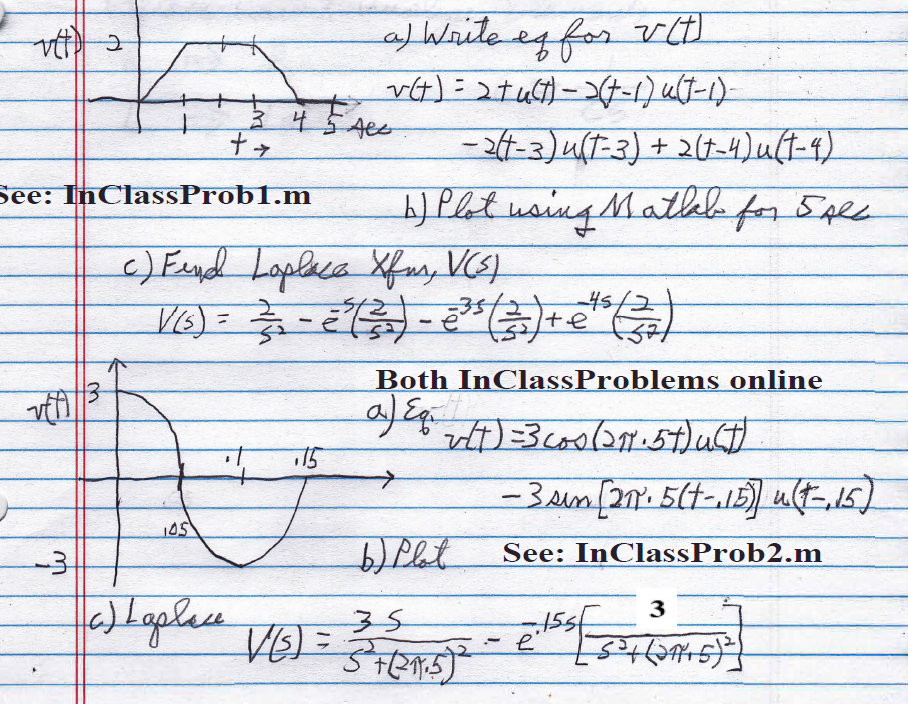 v(t) 2
1 3 4 5 sec
t →
a) Write eq for v(t)
v(t) = 2t u(t) - 2(t-1) u(t-1)
- 2(t-3) u(t-3) + 2(t-4) u(t-4)
See: InClassProb1.m
b) Plot using Matlab for 5 sec
c) Find Laplace Xfm, V(s)
V(s) = 2/s² - e^-s (2/s²) - e^-3s (2/s²) + e^-4s (2/s²)
Both InClassProblems online
v(t) 3
.1 .15
.05
-3
a) Eq.
v(t) = 3 cos(2π·5t) u(t)
- 3 sin [2π·5(t-.15)] u(t-.15)
b) Plot See: InClassProb2.m
c) Laplace
V(s) = 3s/(s²+(2π·5)²) - e^-.15s [3/(s²+(2π·5)²)]